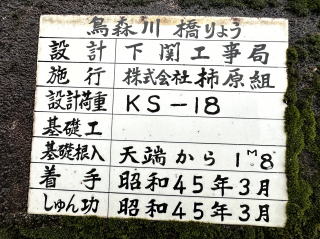 鳥森川 橋りょう
設計 下関工事局
施行 株式会社柿原組
設計荷重 KS-18
基礎工
基礎根入 天端から 1M8
着手 昭和45年3月
しゅん功 昭和45年3月